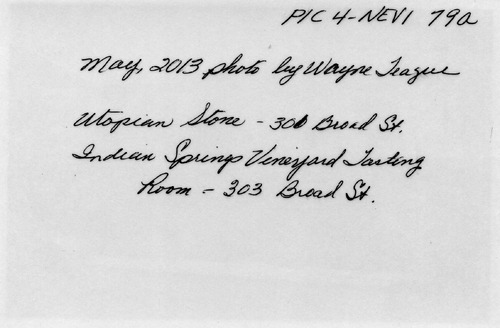 PIC 4-NEVI 79a
May, 2013 photo by Wayne Teague
Utopian Stone - 301 Broad St.
Indian Springs Vineyard Tasting
Room - 303 Broad St.